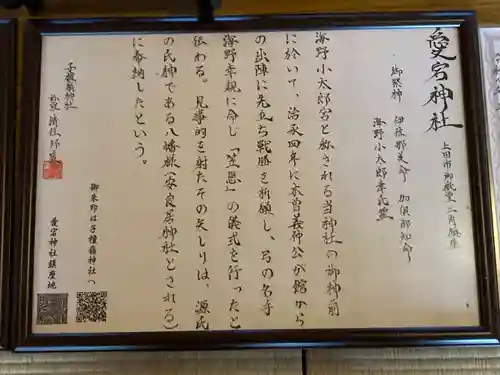 愛宕神社
上田市御歌堂二角鎮座
御祭神　伊弉那美命　加倶都知命
海野小太郎幸氏霊
海野小太郎宮と称される当神社の御神前
に於いて、治承四年に木曽義仲公が館から
の出陣に先立ち戦勝を祈願し、弓の名手
海野幸親に命し「笠懸」の儀式を行ったと
伝わる。見事的を射たその矢じりは、源氏
の氏神である八幡様（安良居神社とされる）
に奉納したという。
子檀嶺神社
御朱印は子檀嶺神社へ
愛宕神社鎮座地